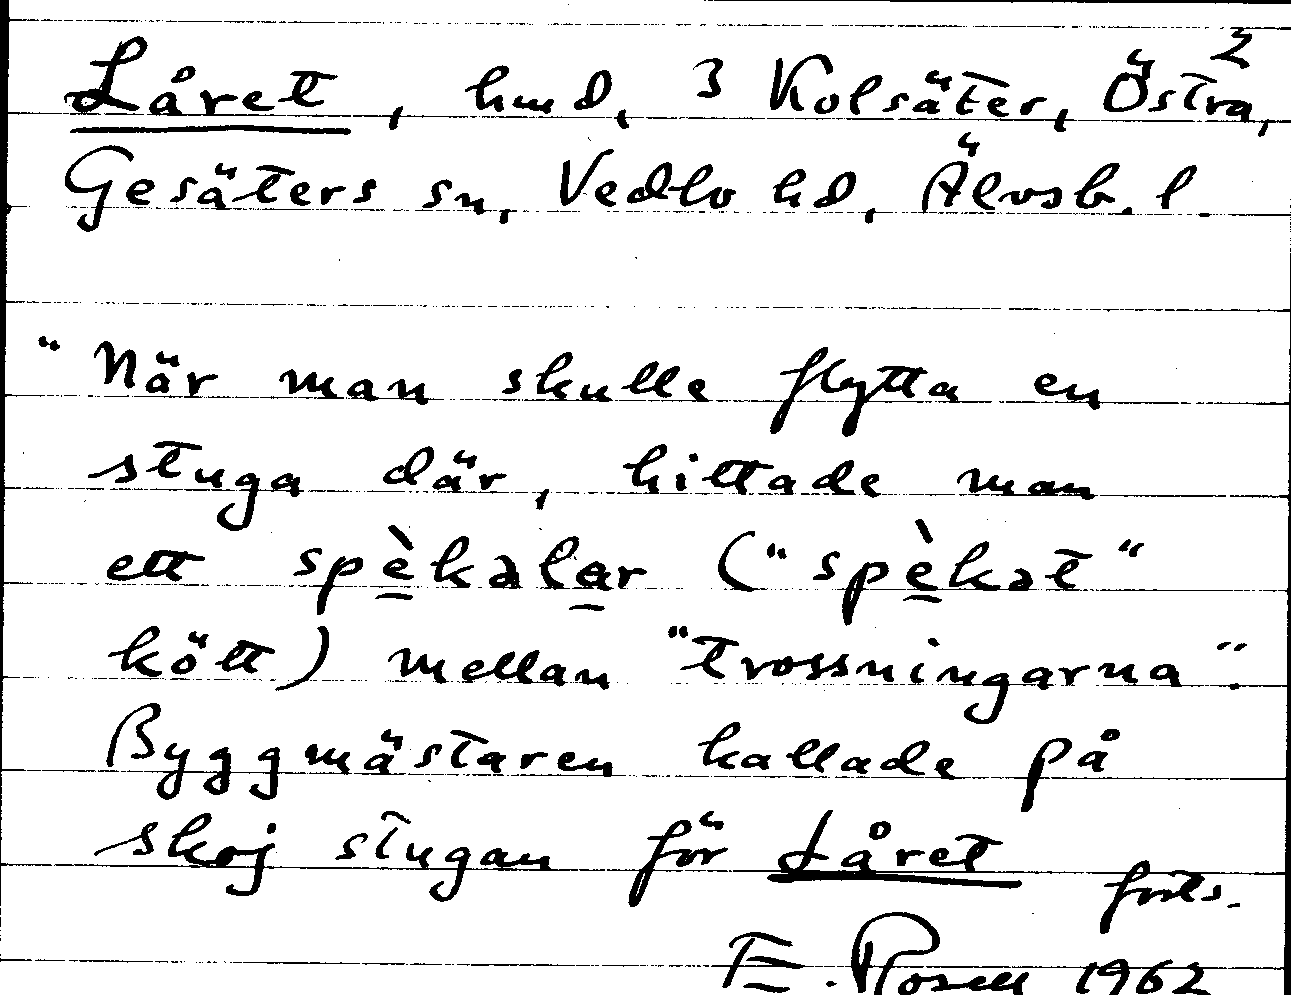 2
Låret, hmd, 3 Kolsäter, Östra,
Gesäters sn, Vedbo hd, Älvsb. l.
"När man skulle flytta en
stuga där, hittade man
ett spèkəlar ("spèkət"
kött) mellan "trossningarna".
Byggmästaren kallade på
skoj stugan för Låret
forts.
E. Rosell 1962